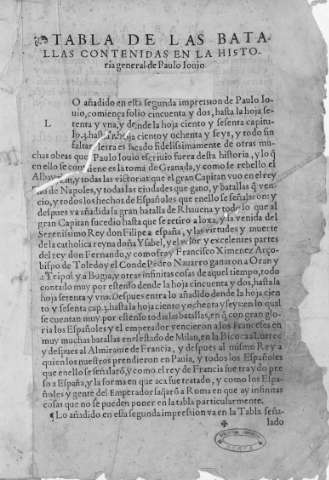 TABLA DE LAS BATA-
LLAS CONTENIDAS EN LA HISTO-
ria general de Paulo Iouio
LO añadido en esta segunda impression de Paulo Io-
uio, comiença folio cincuenta y dos, hasta la hoja se-
tenta y vna, y desde la hoja ciento y sesenta capitu-
lo hasta hoja ciento y ochenta y seys, y todo sin
faltar letra es sacado fidelissimamente de otras mu-
chas obras que Paulo Iouio escriuio fuera desta historia, y lo q̃
en ello se contiene es la toma de Granada, y como se rebello el
y todas las victorias que el gran Capitan vuo en el rey
no de Napoles, y todas las ciudades que gano, y batallas q̃ ven-
cio, y todos los hechos de Españoles que en ello se señalaron: y
despues va añadida la gran batalla de Rhauena y todo lo que al
gran Capitan sucedio hasta que se retiro a loxa, y la venida del
Serenissimo Rey don Felipe a españa, y las virtudes y muerte
de la catholica reyna doña Ysabel, y el valor y excelentes partes
del rey don Fernando, y como fray Francisco Ximenez Arço-
bispo de Toledo y el Conde Pedro Nauarro ganaron a Oran y
a Tripol y a Bugia, y otras infinitas cosas de aquel tiempo, todo
contado muy por estenso desde la hoja cincuenta y dos, hasta la
hoja setenta y vna. Despues entra lo añadido desde la hoja cien
to y sesenta cap. hasta la hoja ciento y ochenta y seys en lo qual
se cuentan muy por estenso todas las batallas, en q̃ con gran glo-
ria los Españoles y el emperador vencieron a los Franceses en
muy muchas batallas en el estado de Milan, en la Bicoca
y despues al Almirante de Francia, y despues al mismo Rey a
quien los nuestros prendieron en Pauia, y todos los Españoles
que en ello se señalarõ, y como el rey de Francia fue traydo pre
so a España, y la forma en que aca fue tratado, y como los Espa-
ñoles y gente del Emperador saq̃arõ a Roma en que ay infinitas
cosas que no se pueden poner en la tabla particularmente.
¶ Lo añadido en esta segunda impression va en la Tabla seña-
lado